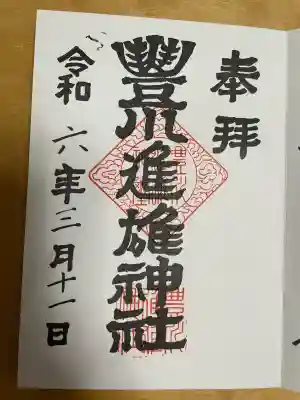 奉拝
豐川進雄神社
令和六年三月十一日